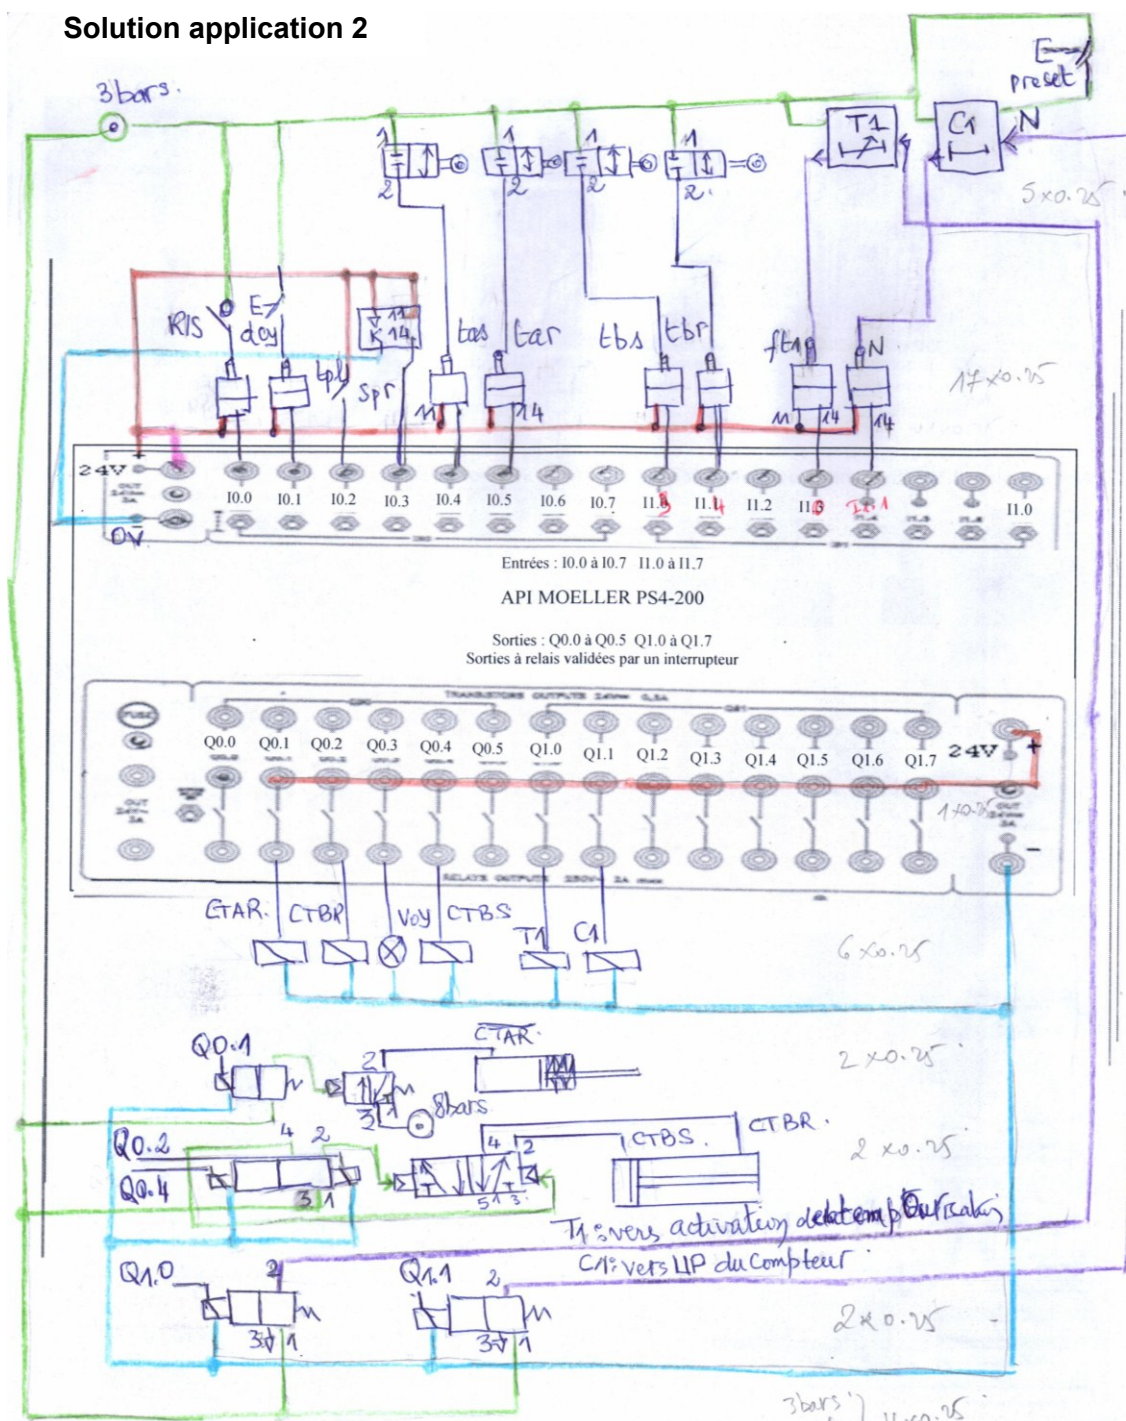 Solution application 2
3bars.
preset
T1
C1
N
1 1 1 1
2 2 2 2.
5x0.25
RIS
E
dcy
11
K 14
tas
tar
tbs
tbr
ft1
N
tpl
spr
17x0.25
11 14 11 14 14
24V
I0.0 I0.1 I0.2 I0.3 I0.4 I0.5 I0.6 I0.7 I1.2 I1.0
0V
Entrées : I0.0 à I0.7 I1.0 à I1.7
API MOELLER PS4-200
Sorties : Q0.0 à Q0.5 Q1.0 à Q1.7
Sorties à relais validées par un interrupteur
TRANSISTORS OUTPUTS 24Vdc 0,5A
FUSE
Q0.0 Q0.1 Q0.2 Q0.3 Q0.4 Q0.5 Q1.0 Q1.1 Q1.2 Q1.3 Q1.4 Q1.5 Q1.6 Q1.7 24V +
1x0.25
OUT
24V
2A
OUT
2A
-
RELAYS OUTPUTS 250V 2A
CTAR. CTBR VOY CTBS T1 C1
6x0.25
CTAR.
Q0.1
2
3 1
8bars
2x0.25
Q0.2
Q0.4
4 2
3 1
4 2
5 1 3
CTBS.
CTBR.
2x0.25
T1: vers activation
C1: vers UP du Compteur
Q1.0
2
3 1
Q1.1
2
3 1
2x0.25
3bars